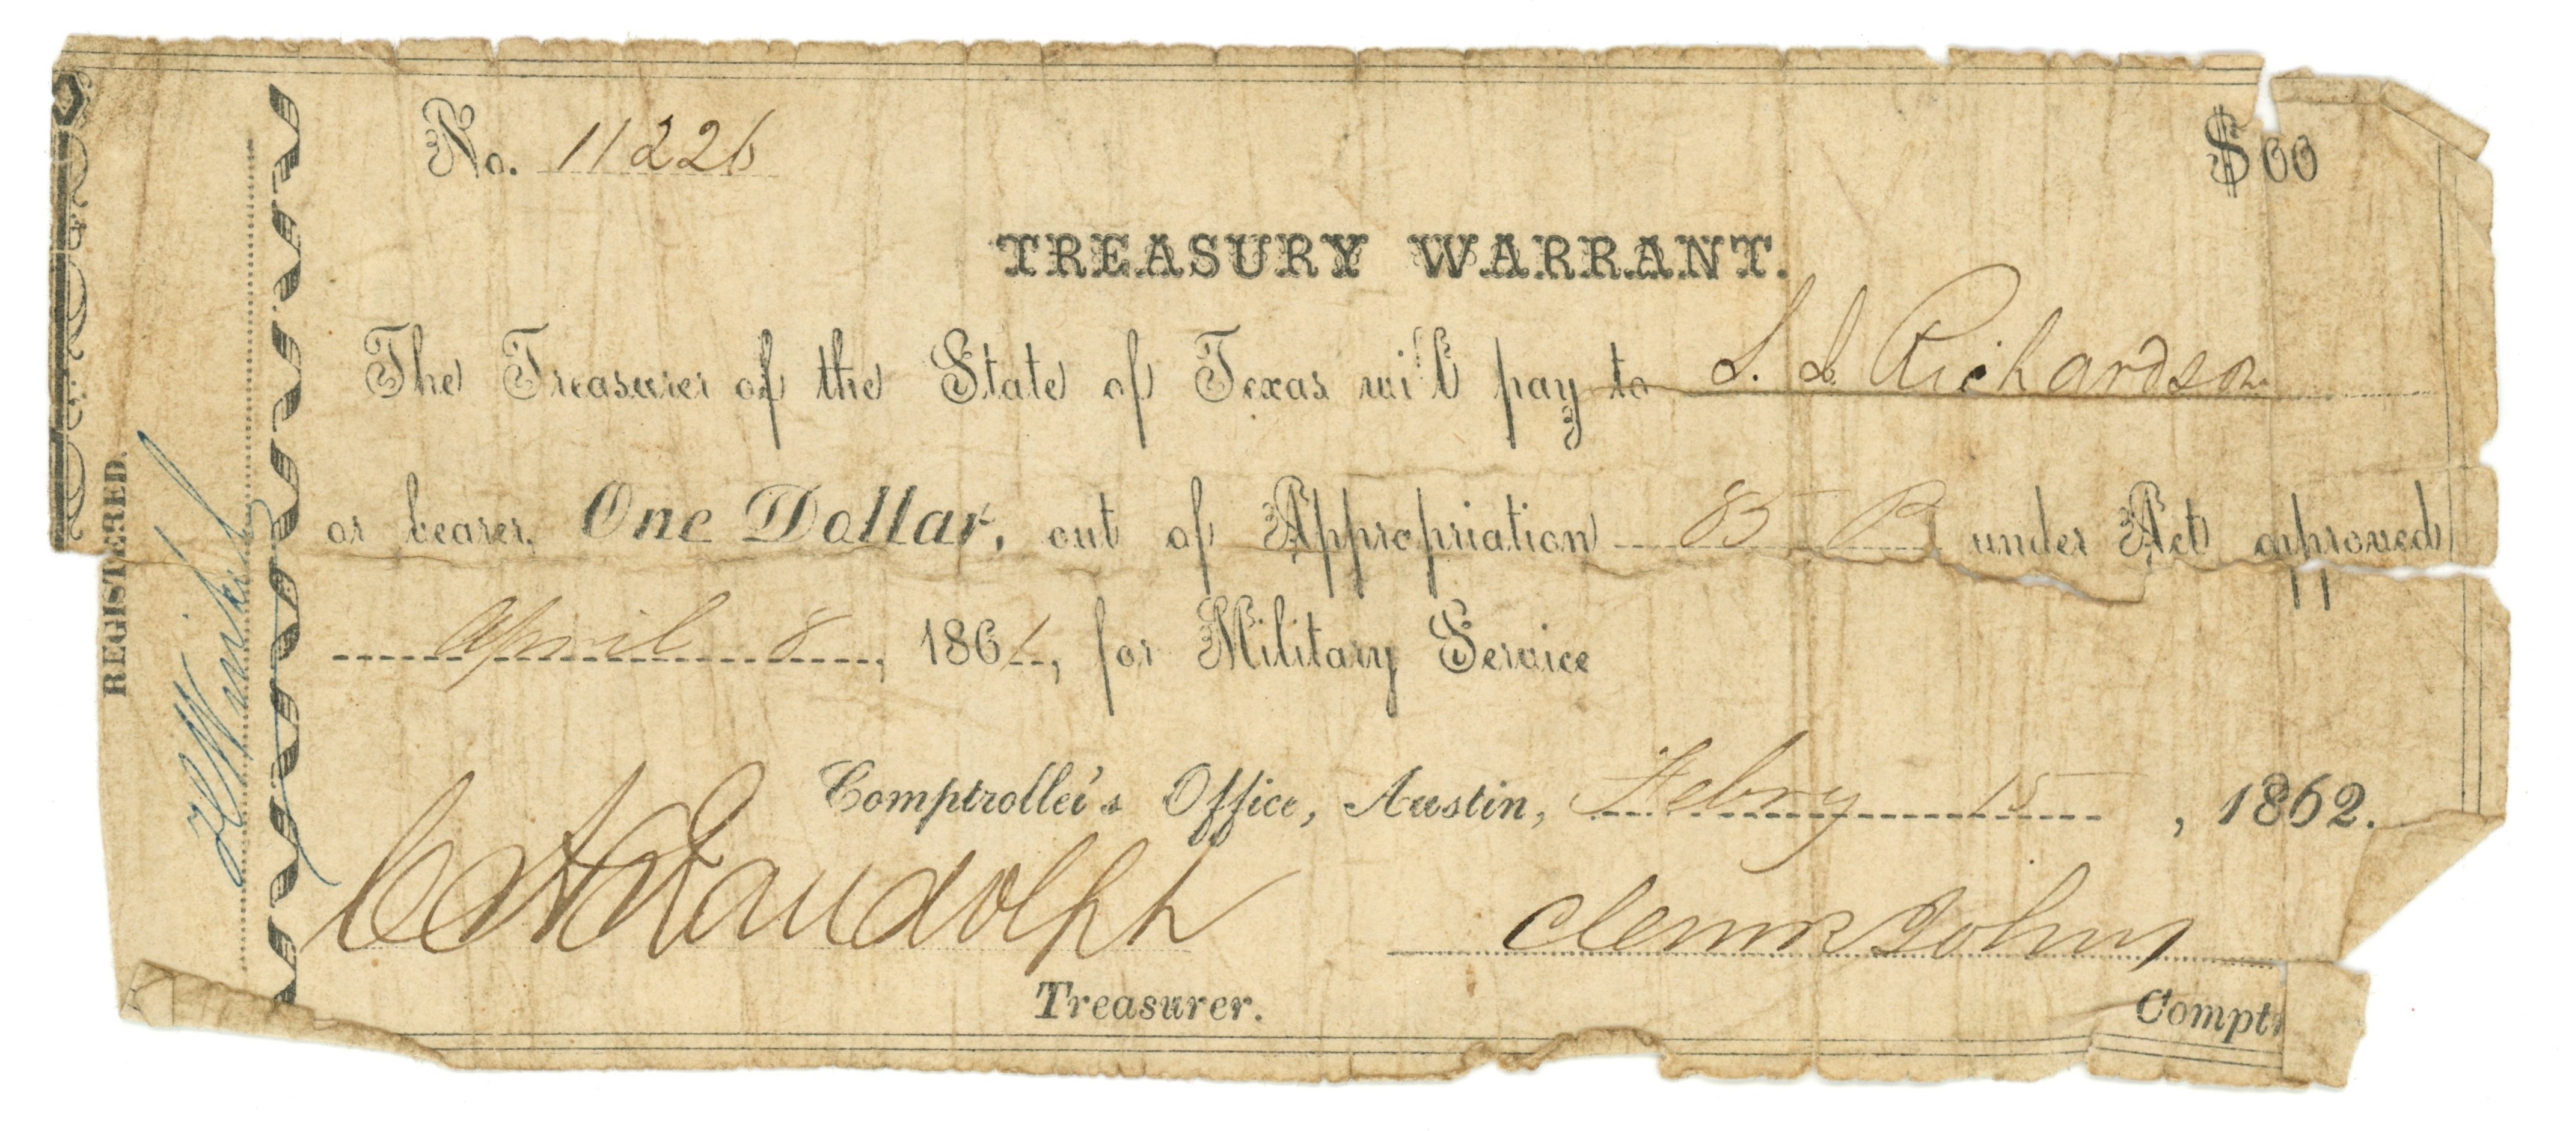 No. 11226
$ 00
TREASURY WARRANT.
The Treasurer of the State of Texas will pay to S. S. Richardson
or bearer, One Dollar, out of Appropriation 85 B under Act approved
April 8, 1861, for Military Service
Comptroller's Office, Austin, Febry 15, 1862.
C H Randolph
Clem R Johns
Treasurer.
Compt
REGISTERED.